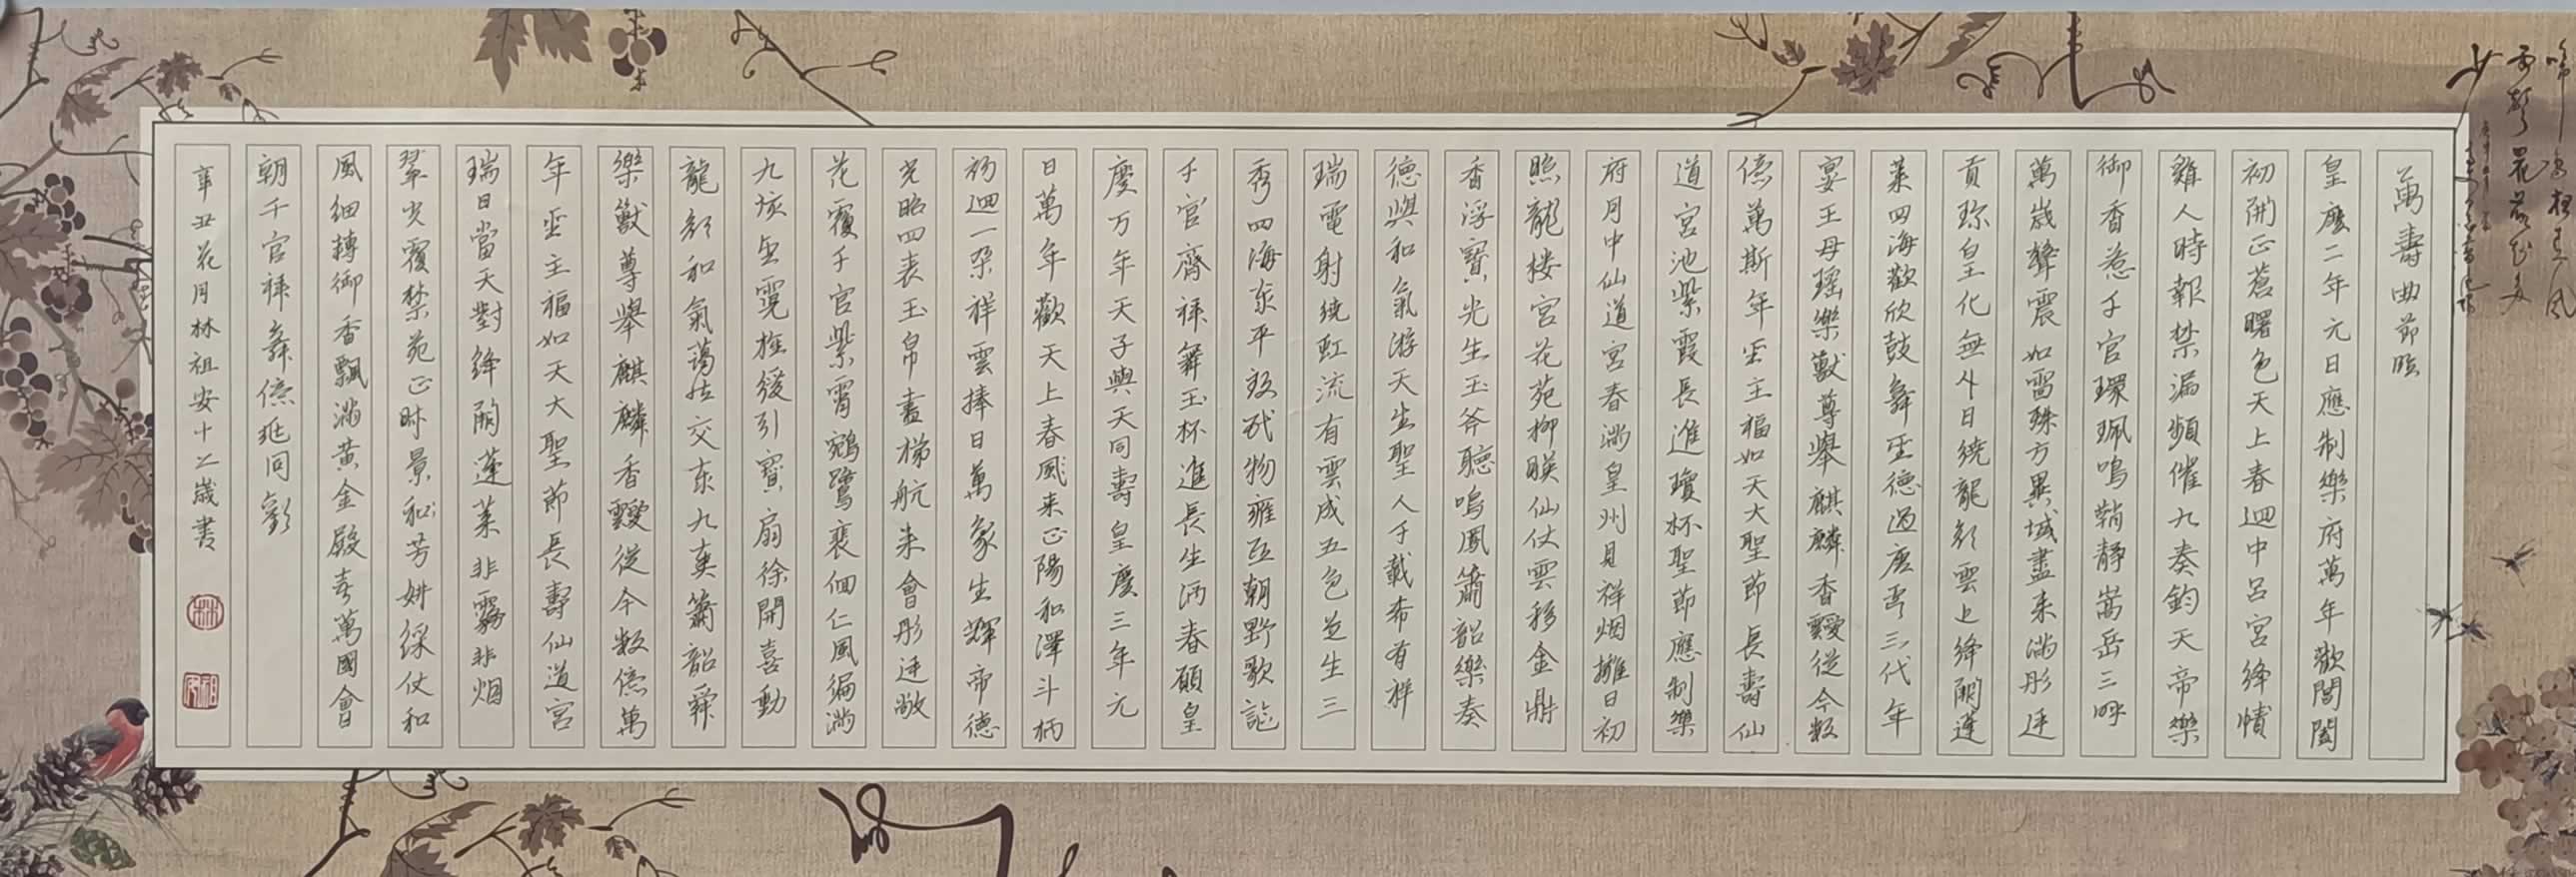 萬壽曲節臨
皇慶二年元日應制樂府萬年歡閶闔
初開正蒼曙色天上春迴中呂宮絳幘
雞人時報禁漏頻催九奏鈞天帝樂
御香惹千官環珮鳴鞘靜嵩岳三呼
萬歲聲震如雷殊方異域盡來滿彤廷
貢珍皇化無外日繞龍顏雲上絳闕蓬
萊四海歡欣鼓舞聖德過唐虞三代年
宴王母瑤樂獻尊舉麒麟香靉從今數
億萬斯年聖主福如天大聖節長壽仙
道宮池紫霞長進瓊杯聖節應制樂
府月中仙道宮春滿皇州見祥烟擁日初
照龍楼宮花苑柳暎仙仗雲移金鼎
香浮寶光生玉斧聽鳴鳳簫韶樂奏
德與和氣游天生聖人千載希有祥
瑞電射繞虹流有雲成五色芝生三
秀四海太平致民物雍熙朝野歌謳
千官齊拜舞玉杯進長生酒春願皇
慶万年天子與天同壽皇慶三年元
日萬年歡天上春風来正陽和澤斗柄
初迴一朵祥雲捧日萬象生輝帝德
光昭四表玉帛盡梯航来會彤廷敞
花覆千官紫霄鵷鷺裴佪仁風徧滿
九垓望霓旌緩引寶扇徐開喜動
龍顏和氣藹然交泰九奏簫韶舜
樂獸尊舉麒麟香靉從今數億萬
年聖主福如天大聖節長壽仙道宮
瑞日當天對絳闕蓬萊非霧非烟
翠光覆禁苑正時景和芳姸綵仗和
風細轉御香飄滿黃金殿喜萬國會
朝千官拜舞億兆同歡
辛丑花月林祖安十二歲書